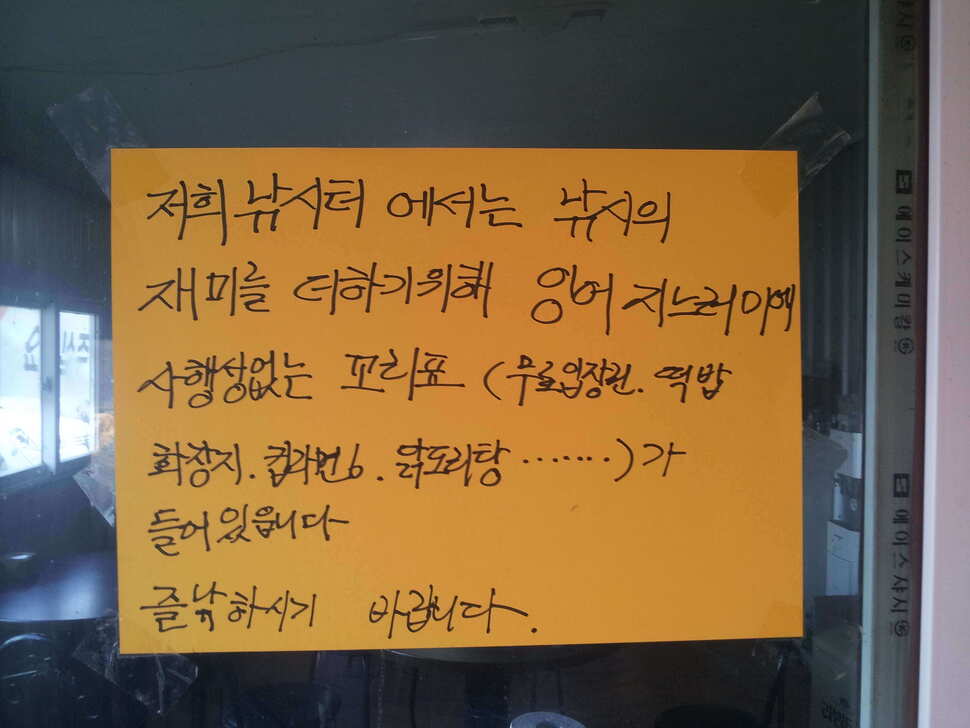 저희 낚시터 에서는 낚시의
재미를 더하기위해 잉어 지느러미에
사행성없는 꼬리표 (무료입장권. 떡밥
화장지. 컵라면6. 닭도리탕 .......)가
들어있읍니다
즐낚하시기 바랍니다.
에이스케미칼
에이스샤시